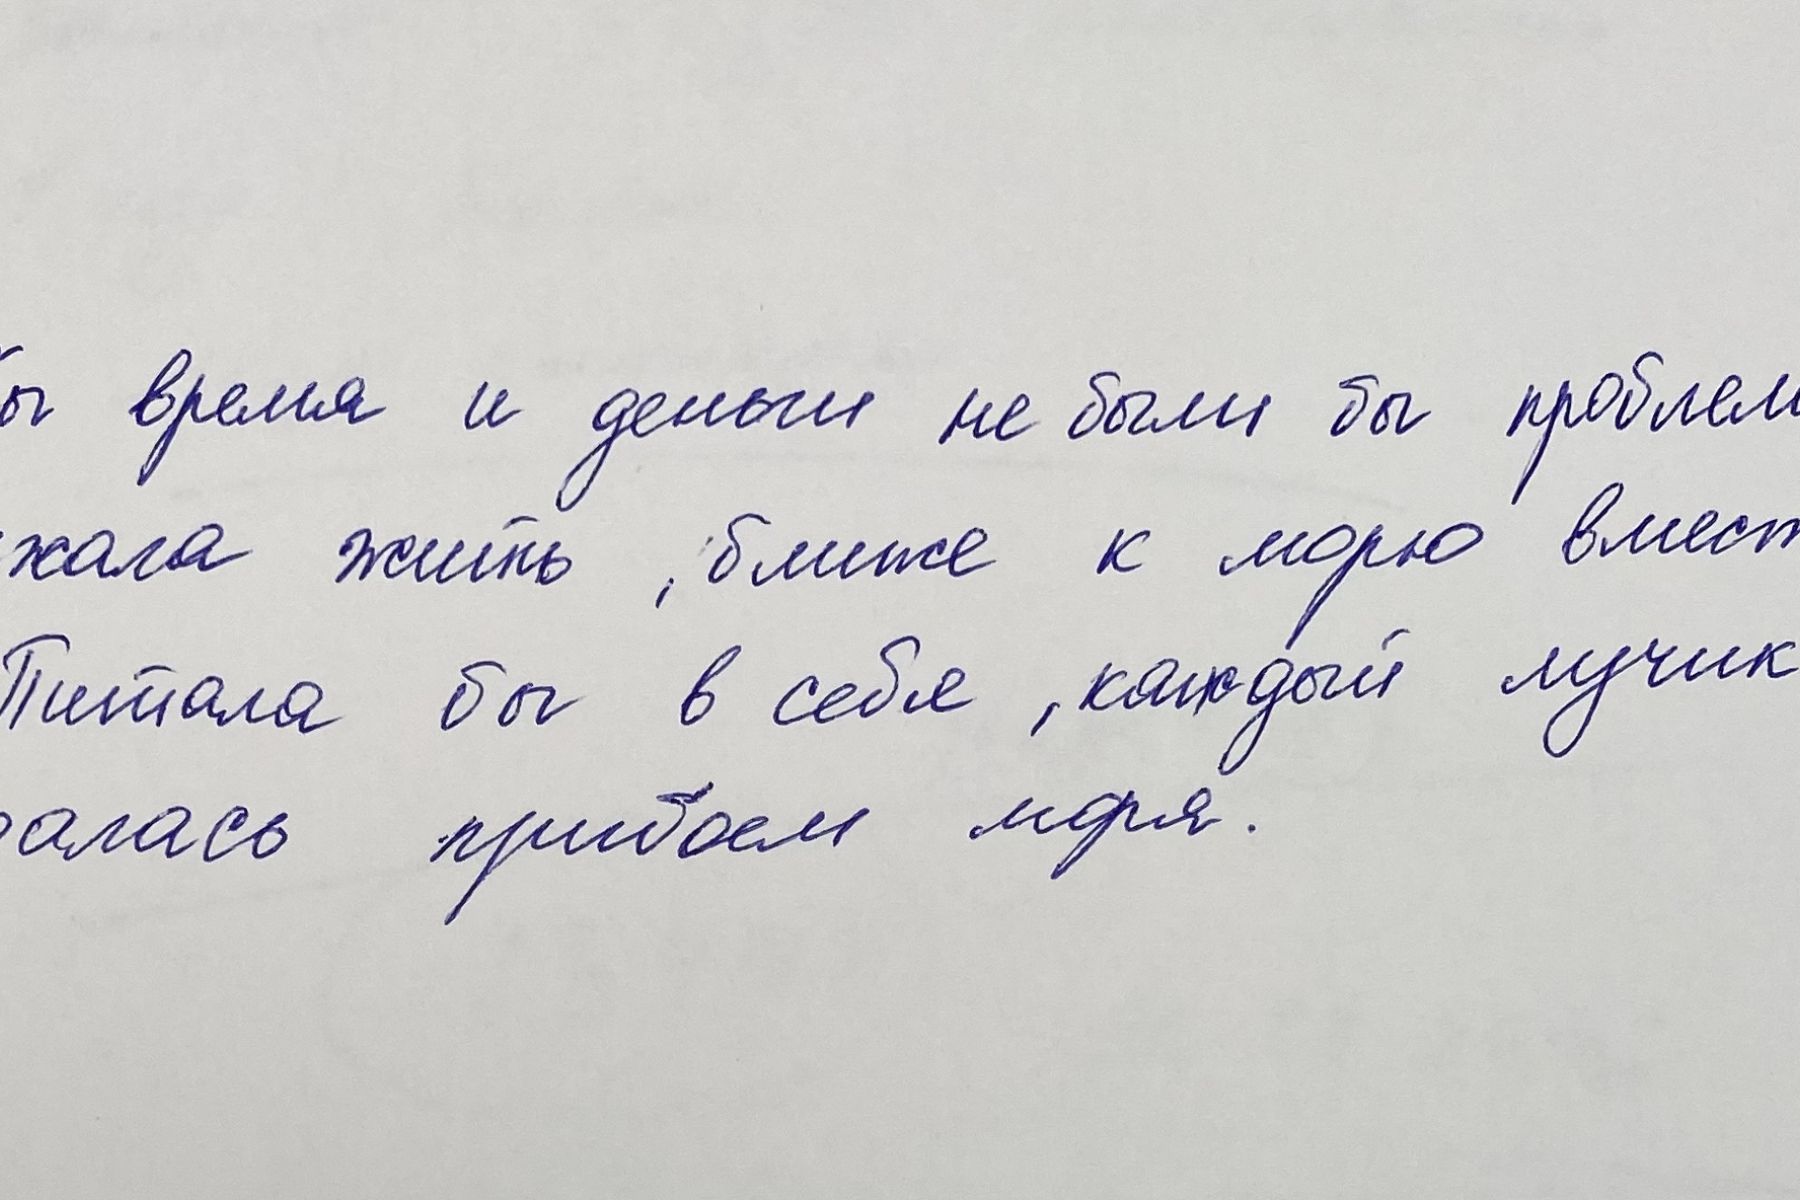 бы время и деньги не были бы проблем
жала жить , ближе к морю вмест
Питала бы в себя , каждый лучик
алась прибоем моря.